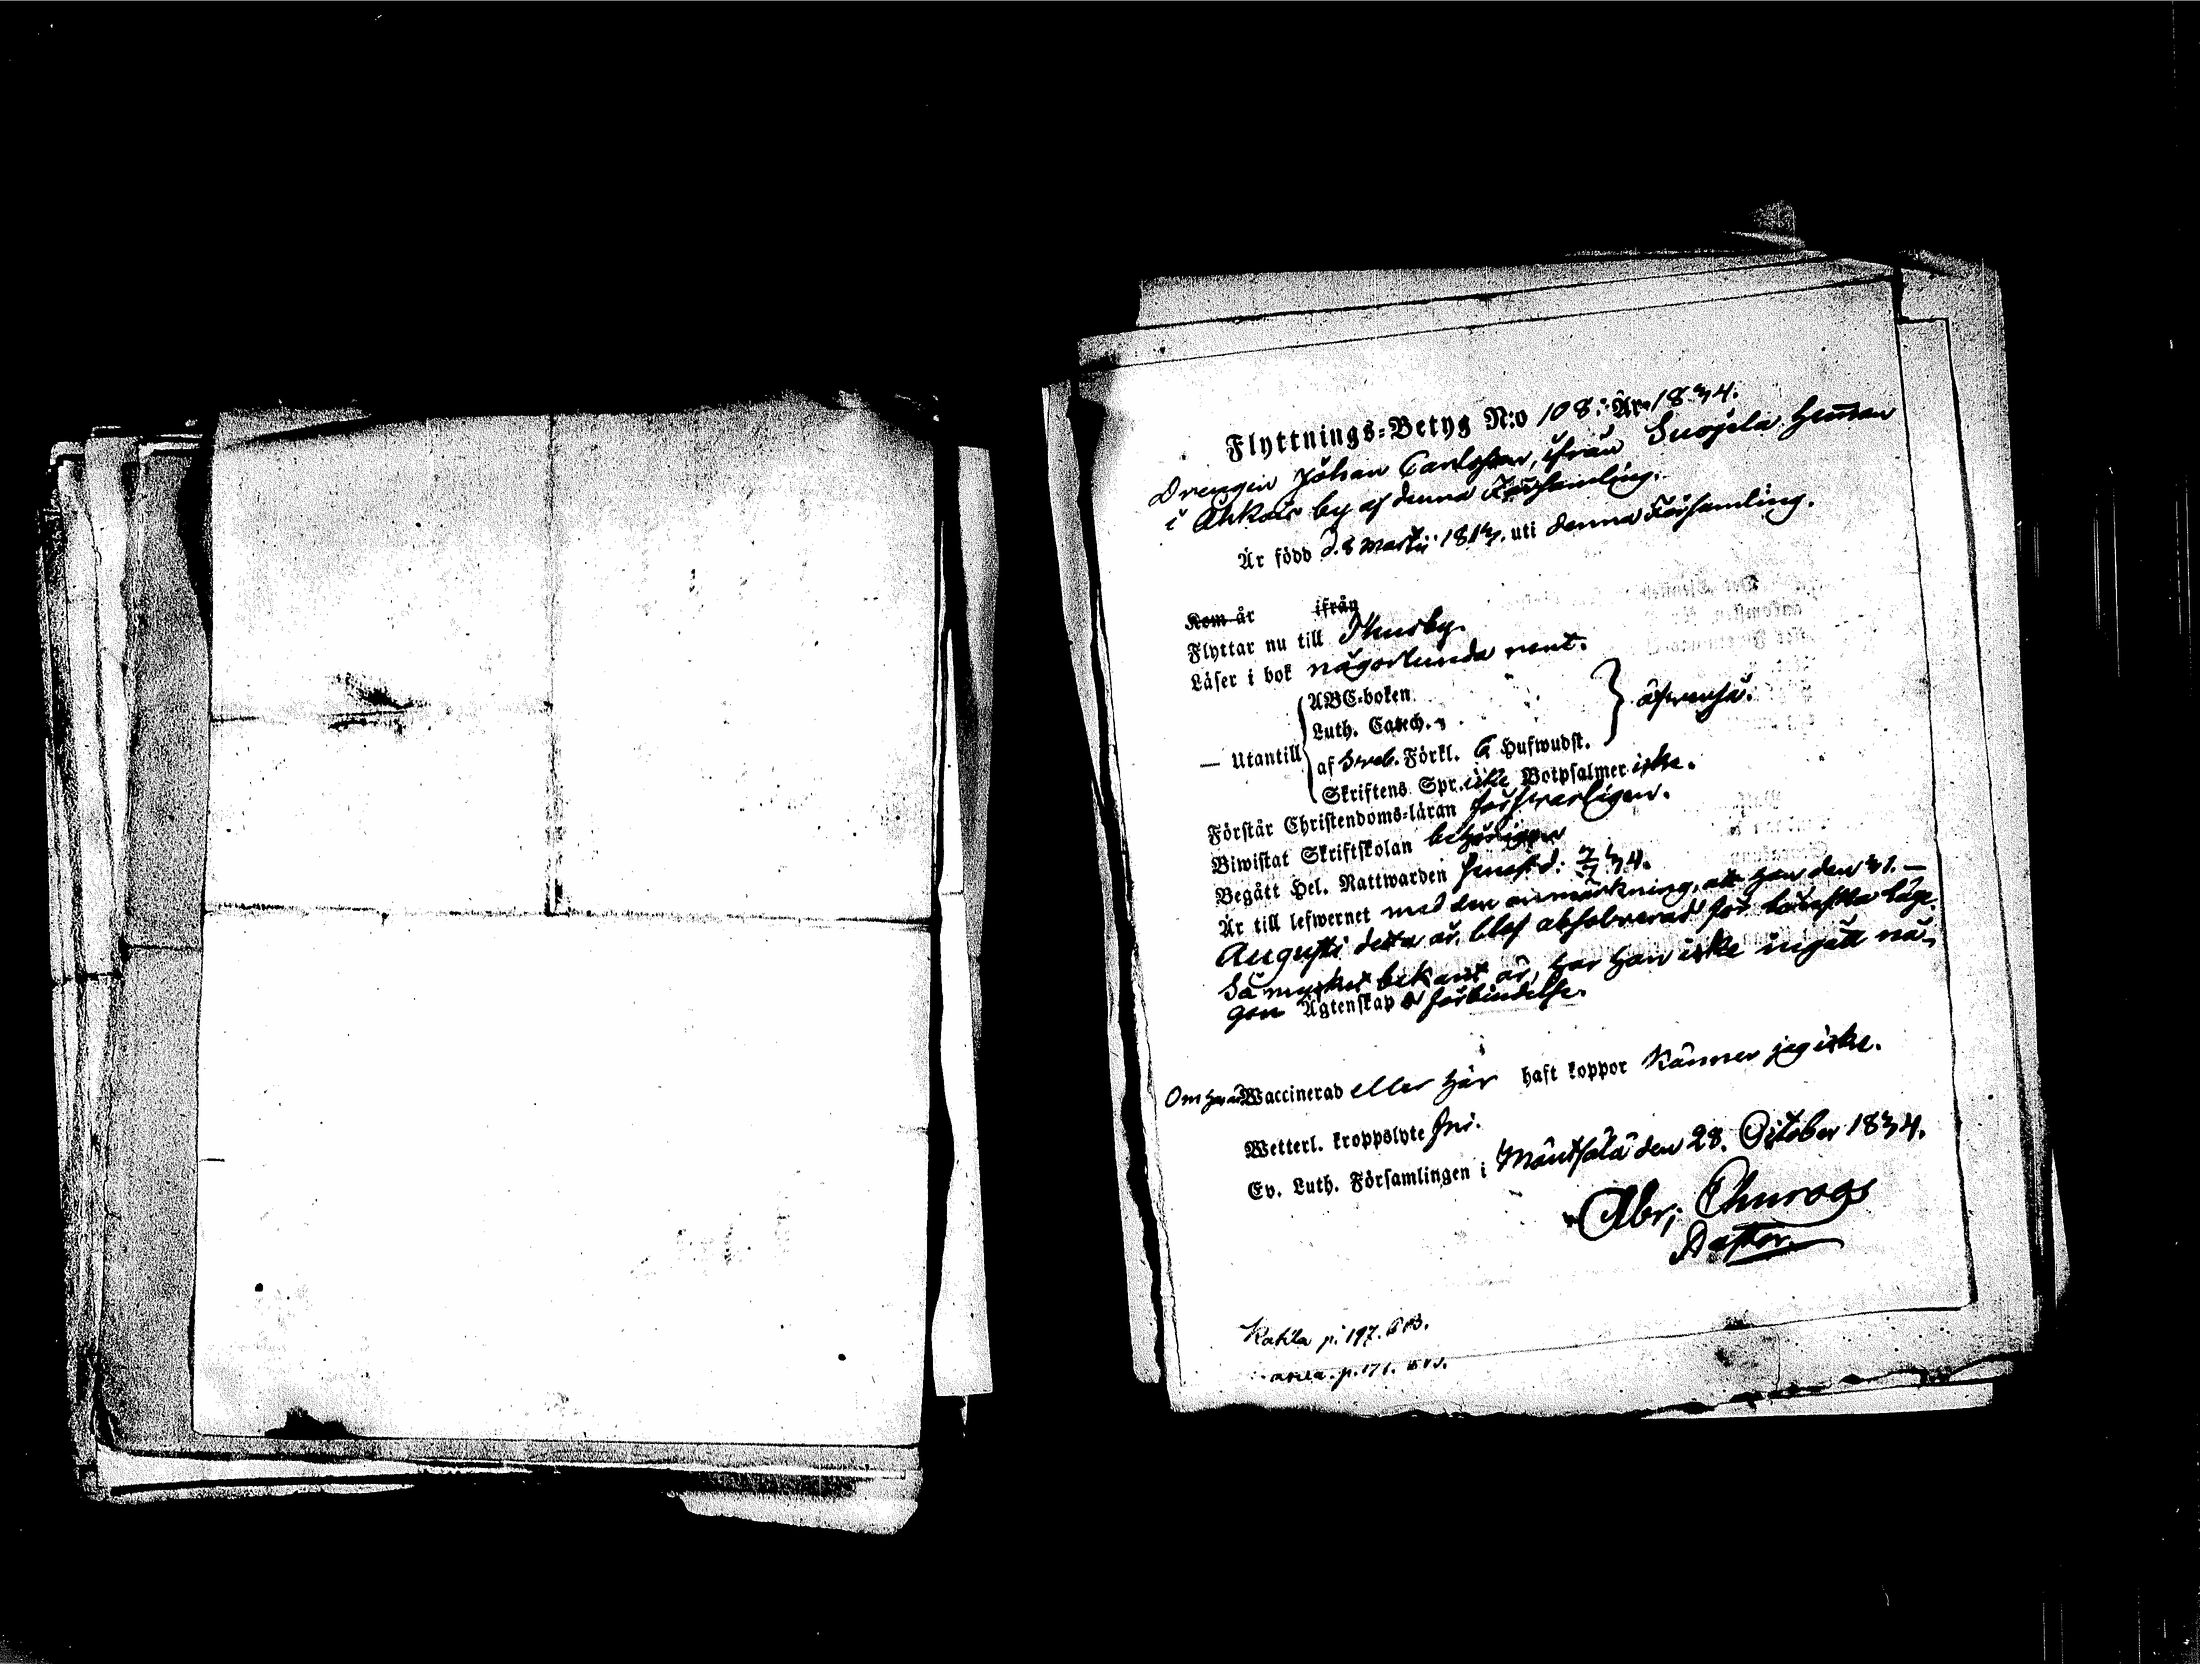 Flyttnings-Betyg N:o 108. År 1834.
Drengen Johan Carlsson, ifrån Suojela hemman
i Ahkois by af denna Församling.
Är född d. 8 Martii 1813. uti denna Församling.
Kom år ifrån
Flyttar nu till Thusby.
Läser i bok någorlunda rent.
ABC-boken
Luth. Catech.
— Utantill
af Sveb. Förkl. 6 Hufwudst.
äfvenså.
Skriftens Spr. icke Botpsalmer icke.
Förstår Christendoms-läran försvarligen.
Biwistat Skriftskolan behörigen
Begått Hel. Nattwarden senast d. 34.
Är till lefwernet med den anmärkning, att han den 31. —
Augusti detta år, blef absolverad för
Så mycket bekant är, har han icke ingått nå-
gon Ägtenskaps förbindelse.
Om han är Waccinerad eller här haft koppor känner jag icke.
Wetterl. kroppslyte fri.
Ev. Luth. Församlingen i Mäntsälä den 28. October 1834.
Abr;
Pastor.
p. 197.
p. 171.